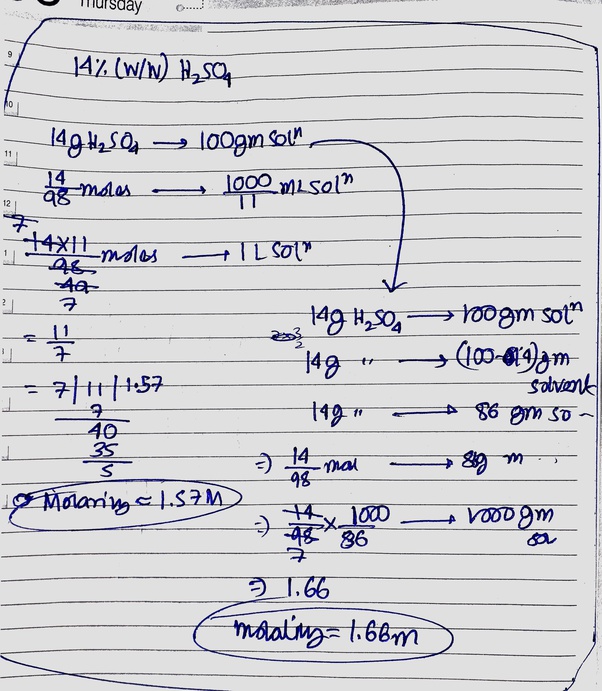 Thursday
9
14% (W/W) H₂SO₄
10
14g H₂SO₄ → 100gm solⁿ
11
14/98 moles → 1000/11 mL solⁿ
12
7
14×11/98 moles → 1L solⁿ
1
49
7
2
= 11/7
= 7/11/1.57
7
40
35
5
Molarity = 1.57M
14g H₂SO₄ → 100gm solⁿ
14g " → (100-14)gm
solvent
14g " → 86 gm so -
=) 14/98 mol → 86 m
=) 14/98 × 1000/86 → 1000 gm
7
=) 1.66
molality = 1.66m